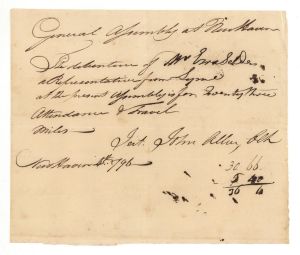 General Assembly at New Haven
The debenture of Mr Ezra Selden
a Representative from Lyme
at the present Assembly is for Twenty three
Attendance & Travel
Miles
Test. John Allen Clk
New Haven 1796
30 66
5 40
36 6